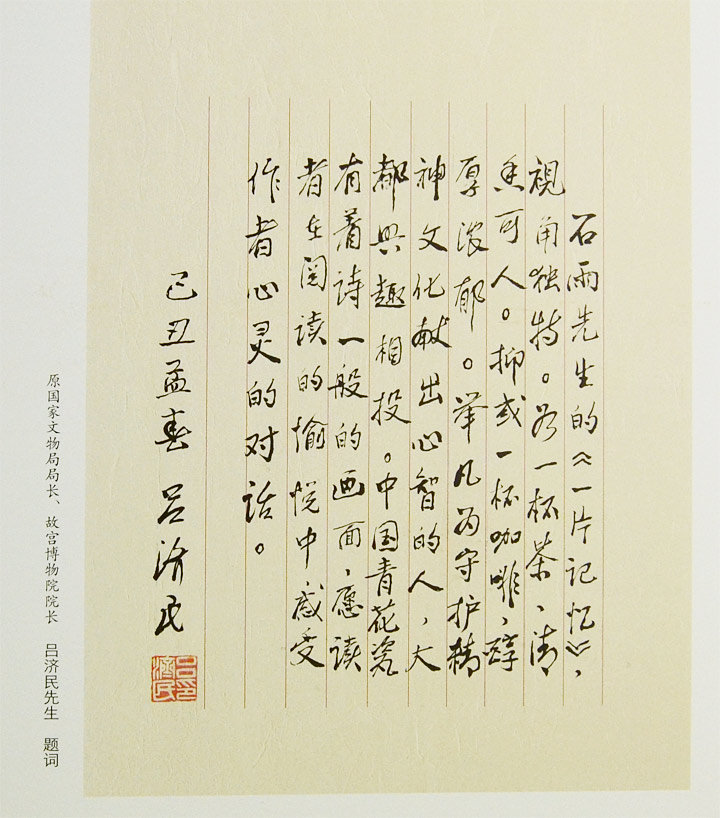 石雨先生的《一片记忆》，
視角独特。若一杯茶、清
香可人。抑或一杯咖啡，醇
厚浓郁。举凡为守护精
神文化献出心智的人，大
都兴趣相投。中国青花瓷
有着诗一般的画面，愿读
者在阅读的愉悦中感受
作者心灵的对话。
己丑孟春 吕济民
吕印濟民
原国家文物局局长、故宫博物院院长 吕济民先生 题词